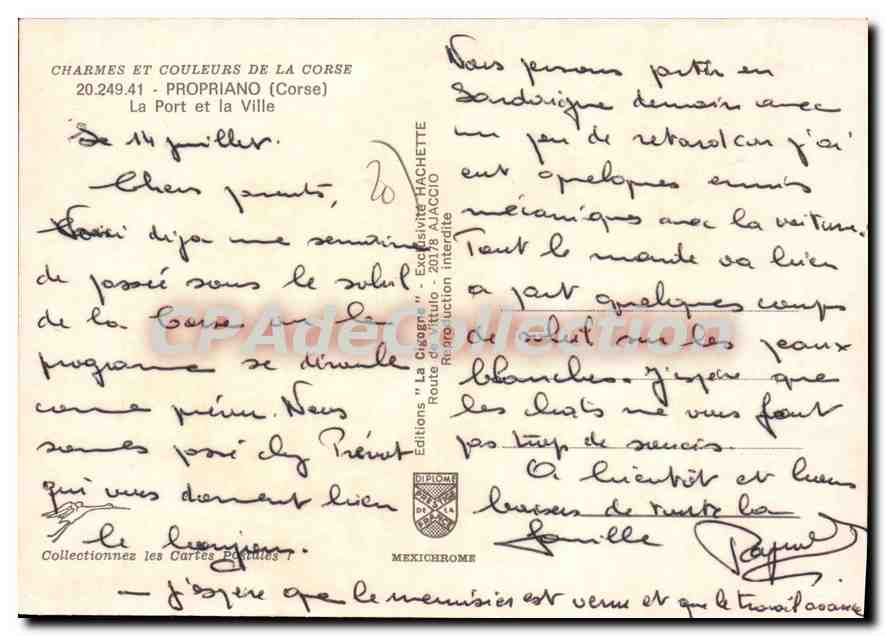 CHARMES ET COULEURS DE LA CORSE
20.249.41 - PROPRIANO (Corse)
La Port et la Ville
Le 14 juillet.
20
Chers parents,
Voici déja une semaine
de passée sous le soleil
de la Corse où le
programme se déroule
comme prévu. Nous
sommes passé chez Prévot
qui vous donnent bien
le bonjour.
Collectionnez les Cartes Postales !
Editions "La Cigogne" - Exclusivité HACHETTE
Route de Vittulo - 20178 AJACCIO
Reproduction interdite
DIPLOME
PRESTIGE
DE LA
FRANCE
MEXICHROME
Nous pensons partir en
Sardaigne demain avec
un peu de retard car j'ai
eut quelques ennuis
mécaniques avec la voiture.
Tout le monde va bien
a part quelques coups
de soleil sur les peaux
blanches. J'espère que
les chats ne vous font
pas trop de soucis.
A bientôt et bons
baisers de toute la
famille
- J'espère que le menuisier est venu et que le travail avance
CPAdeCollection